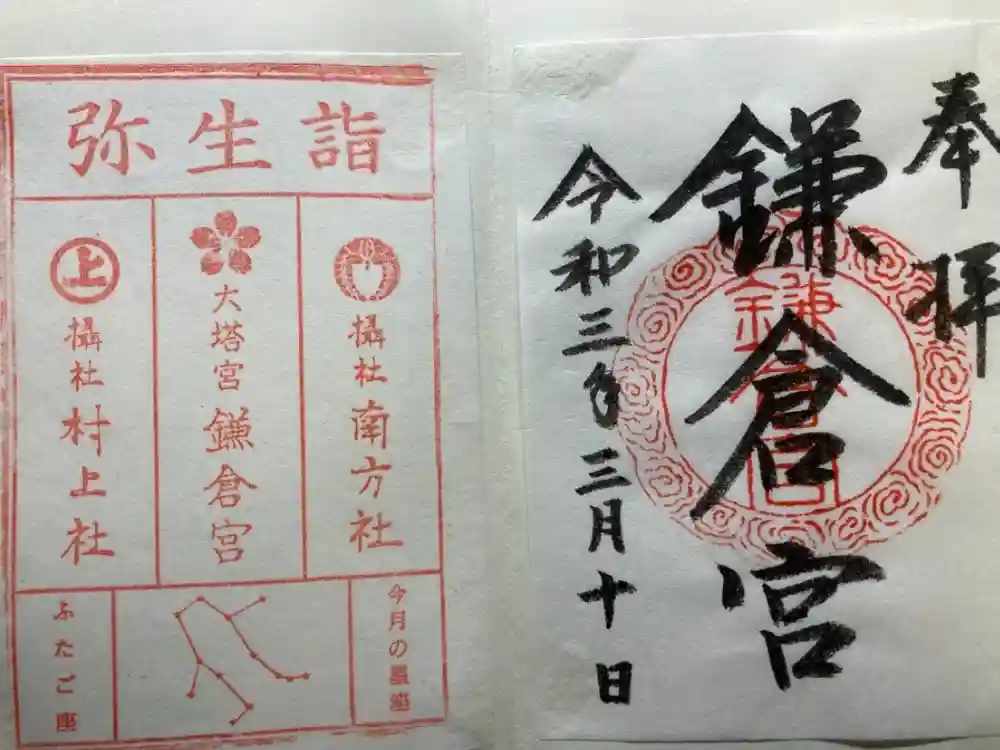 奉拝
鎌倉宮
令和三年三月十日
鎌倉宮
弥生詣
攝社 南方社
大塔宮 鎌倉宮
上
攝社 村上社
今月の星座
ふたご座